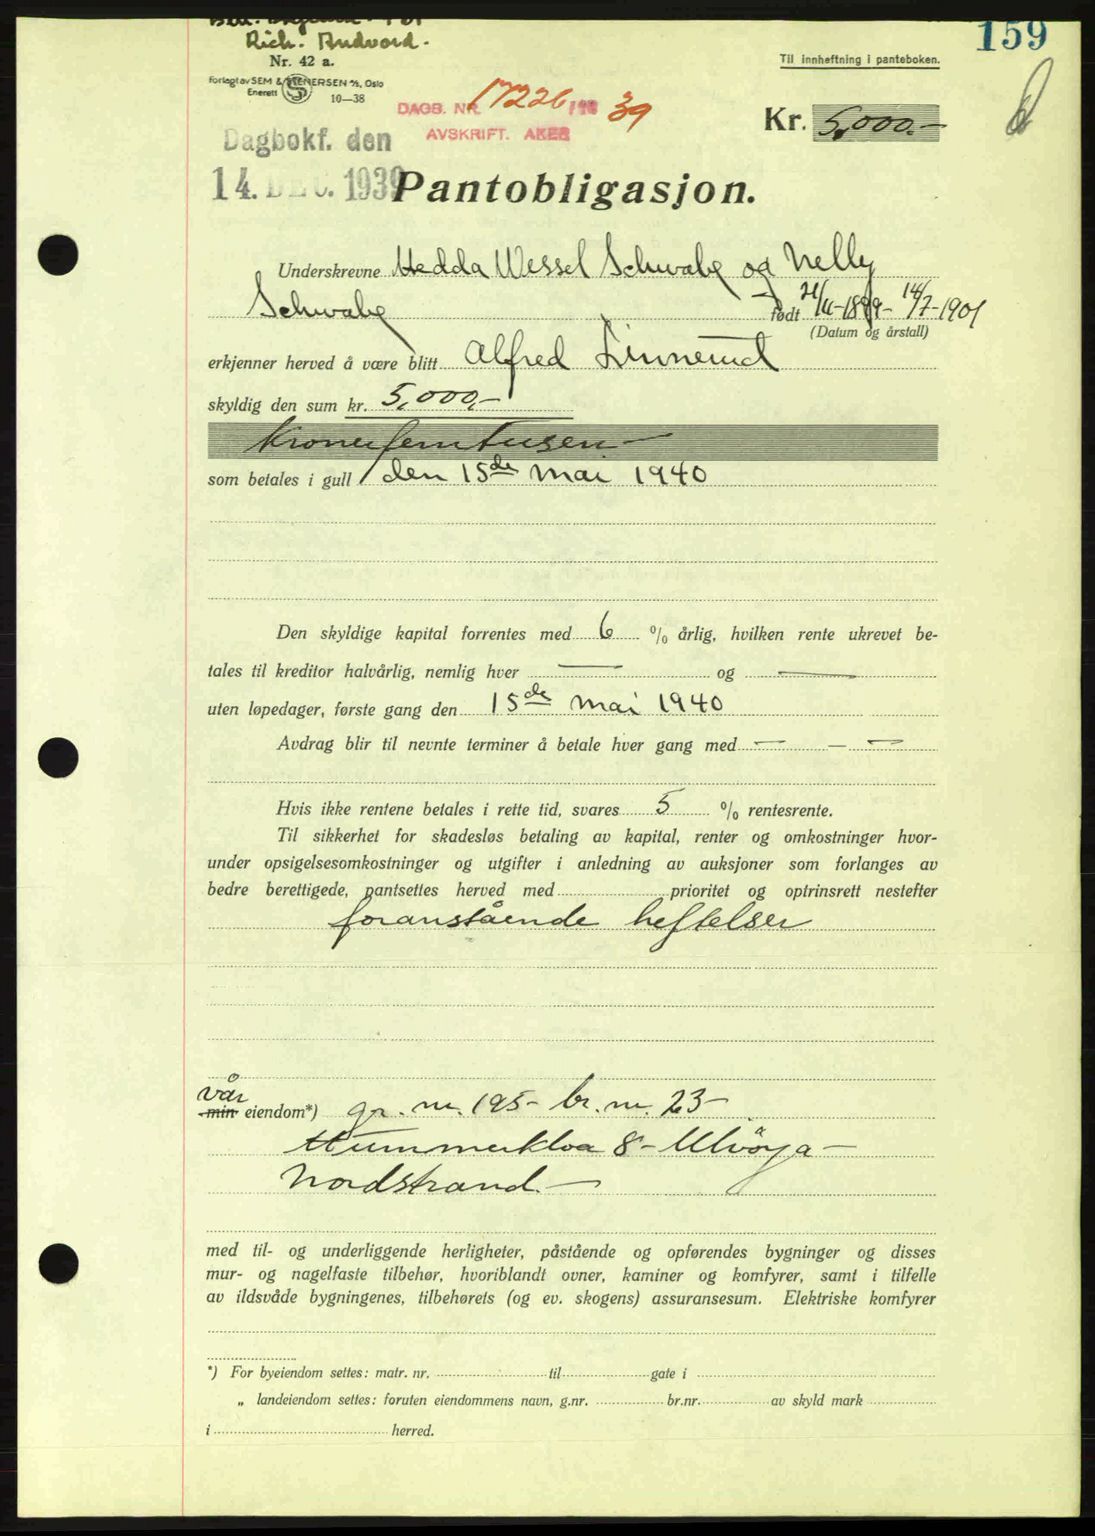 159
Rich. Andvord.
Nr. 42 a.
Til innheftning i panteboken.
Forlagt av SEM & STENERSEN A/S, Oslo
Enerett 10—38
DAGB. NR. 17226 19 39
AVSKRIFT. AKER
Kr. 5,000.-
Dagbokf. den
14. DEC. 1939
Pantobligasjon.
Underskrevne Hedda Wessel Schwabe og Nelly
Schwabe født 21/11-1899- 14/7-1901
(Datum og årstall)
erkjenner herved å være blitt Alfred Linnerud
skyldig den sum kr. 5,000,-
Kroner femtusen —
som betales i gull den 15de mai 1940
Den skyldige kapital forrentes med 6 % årlig, hvilken rente ukrevet be-
tales til kreditor halvårlig, nemlig hver — og —
uten løpedager, første gang den 15de mai 1940
Avdrag blir til nevnte terminer å betale hver gang med — — —
Hvis ikke rentene betales i rette tid, svares 5 % rentesrente.
Til sikkerhet for skadesløs betaling av kapital, renter og omkostninger hvor-
under opsigelsesomkostninger og utgifter i anledning av auksjoner som forlanges av
bedre berettigede, pantsettes herved med prioritet og optrinsrett nestefter
foranstående heftelser
vår
min eiendom*) gr. nr. 195- br. nr. 23-
Hummerkloa 8 - Ulvöya -
Nordstrand. —
med til- og underliggende herligheter, påstående og opførendes bygninger og disses
mur- og nagelfaste tilbehør, hvoriblandt ovner, kaminer og komfyrer, samt i tilfelle
av ildsvåde bygningenes, tilbehørets (og ev. skogens) assuransesum. Elektriske komfyrer
*) For byeiendom settes: matr. nr. til gate i
„ landeiendom settes: foruten eiendommens navn, g.nr. br.nr. av skyld mark
i herred.